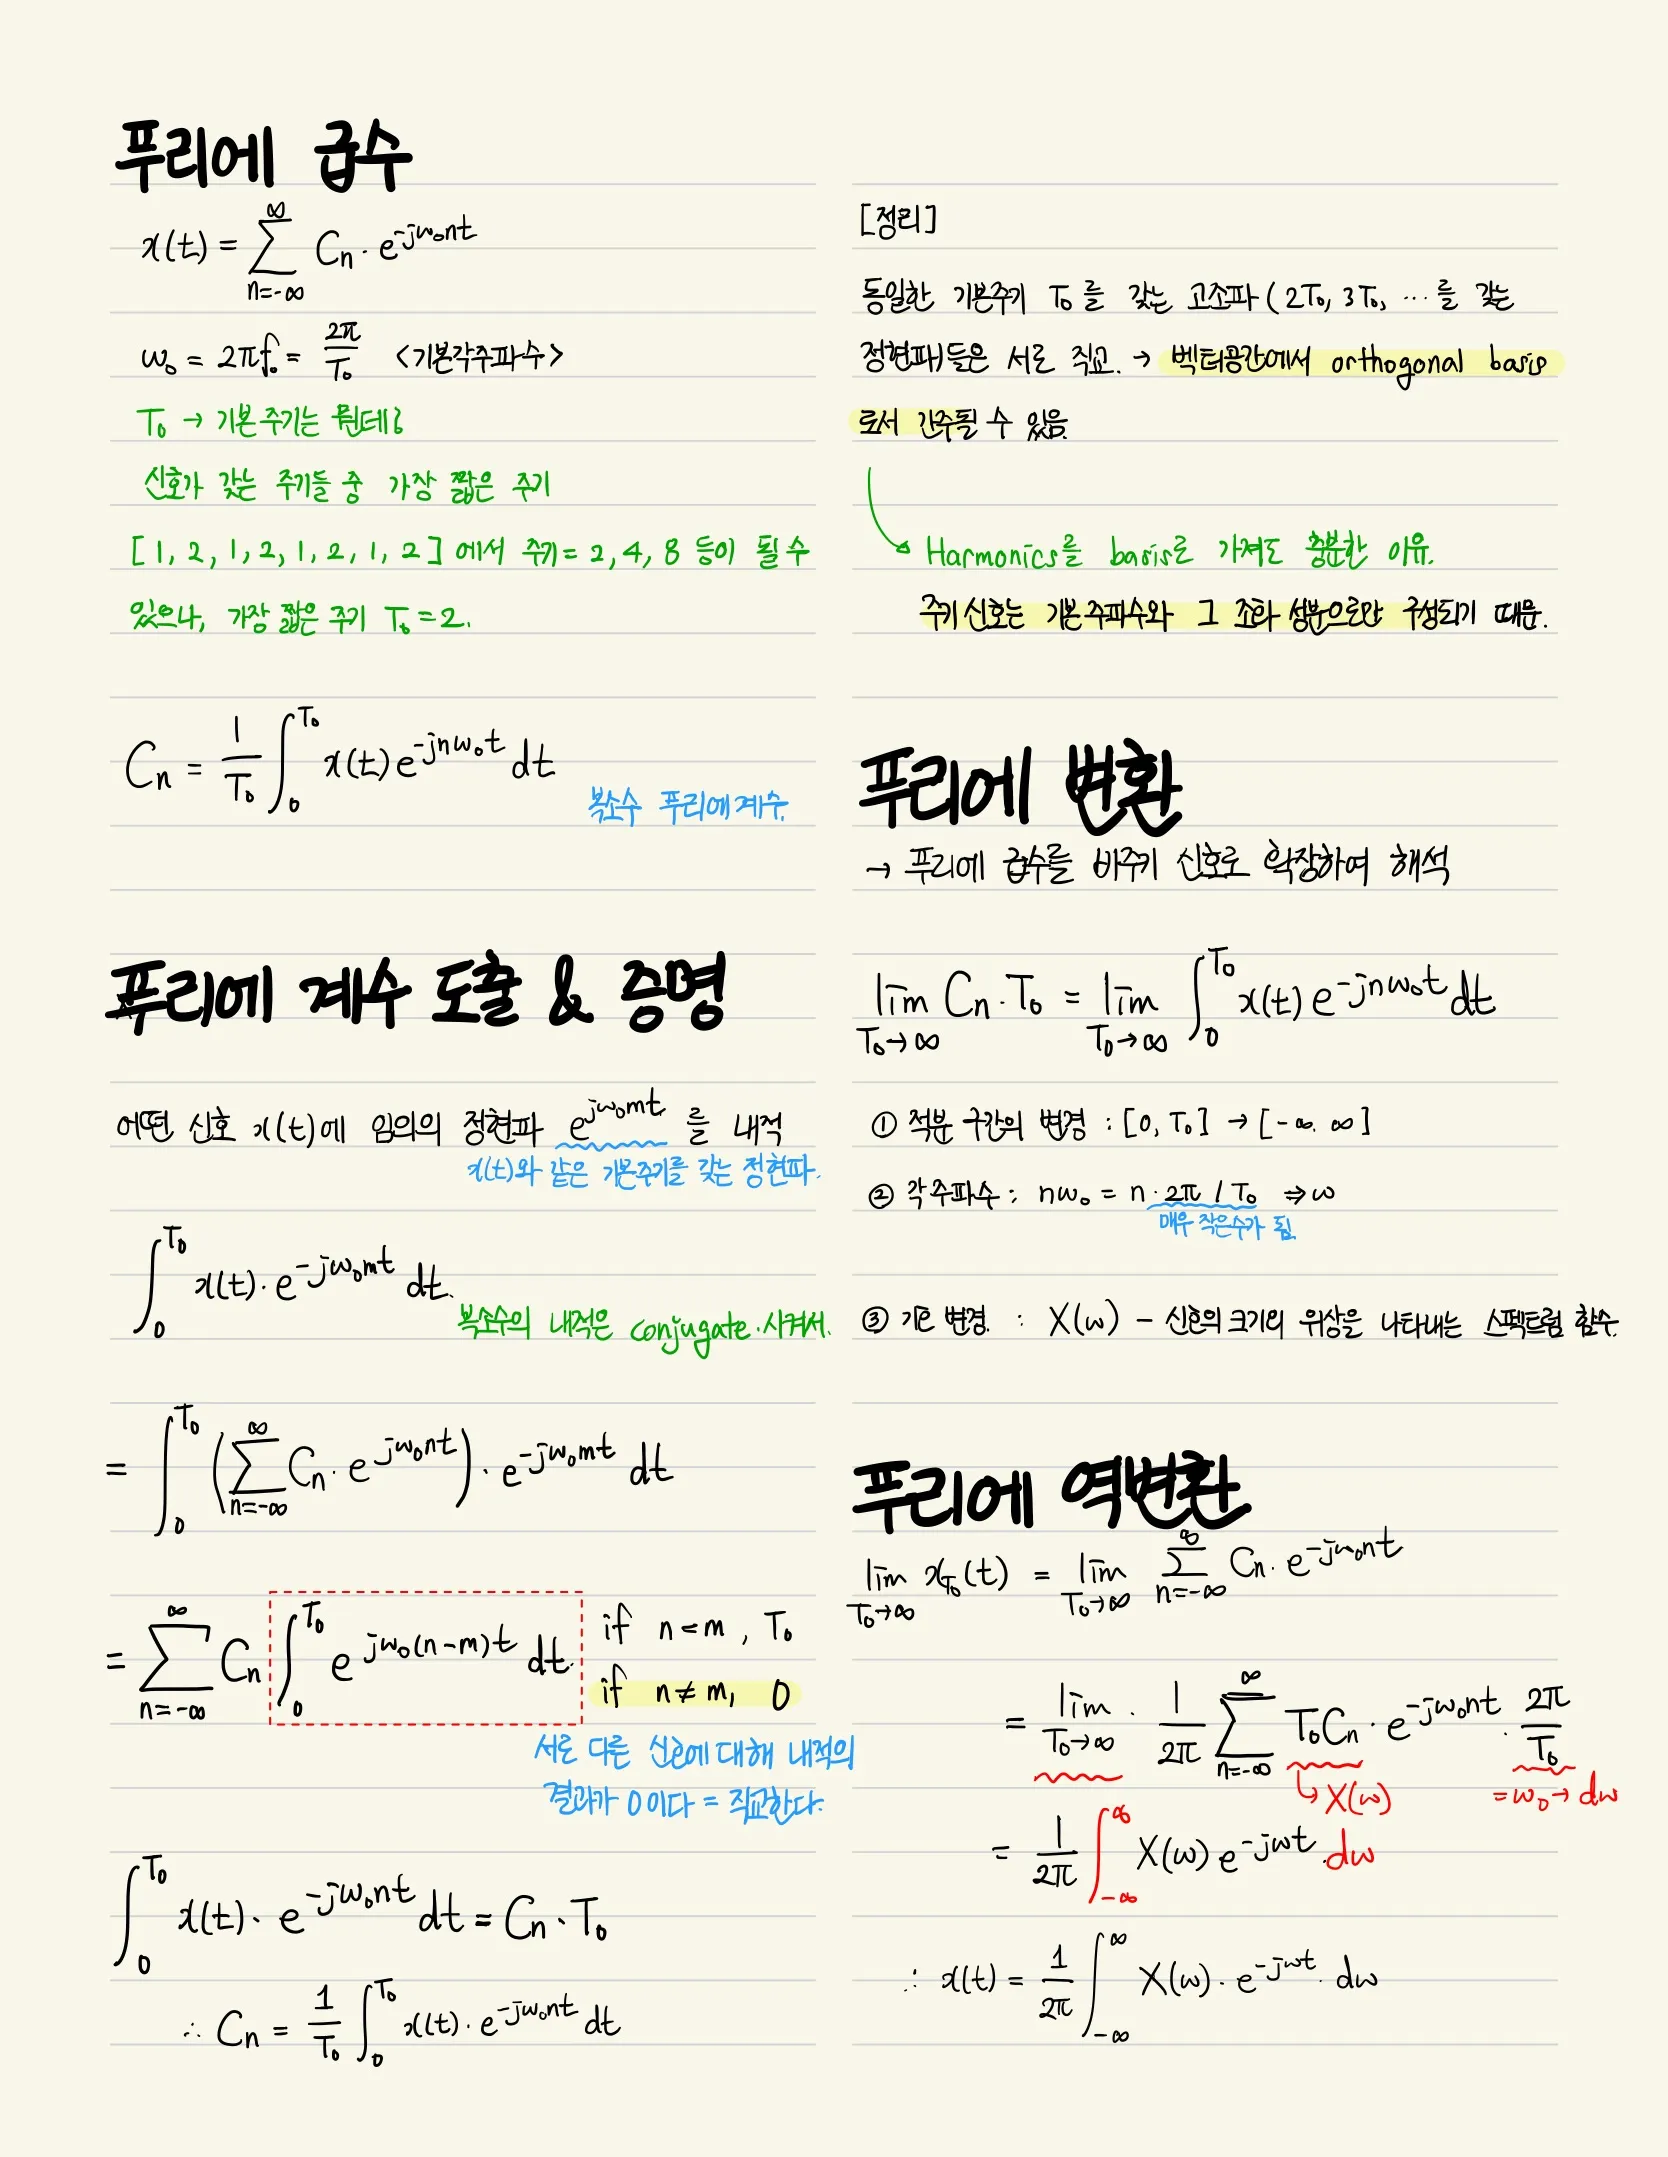 푸리에 급수
x(t) = ∑_{n=-∞}^{∞} C_n · e^{-jω₀nt}
ω₀ = 2πf₀ = 2π/T₀ <기본각주파수>
T₀ → 기본주기는 뭔데?
신호가 갖는 주기들 중 가장 짧은 주기
[1, 2, 1, 2, 1, 2, 1, 2] 에서 주기 = 2, 4, 8 등이 될 수
있으나, 가장 짧은 주기 T₀ = 2.
C_n = 1/T₀ ∫_0^{T₀} x(t) e^{-jnω₀t} dt
복소수 푸리에계수.
푸리에 계수 도출 & 증명
어떤 신호 x(t)에 임의의 정현파 e^{jω₀mt} 를 내적
x(t)와 같은 기본주기를 갖는 정현파.
∫_0^{T₀} x(t) · e^{-jω₀mt} dt.
복소수의 내적은 conjugate 시켜서.
= ∫_0^{T₀} (∑_{n=-∞}^{∞} C_n · e^{jω₀nt}) · e^{-jω₀mt} dt
= ∑_{n=-∞}^{∞} C_n ∫_0^{T₀} e^{jω₀(n-m)t} dt. if n=m, T₀
if n≠m, 0
서로 다른 신호에 대해 내적의
결과가 0이다 = 직교한다.
∫_0^{T₀} x(t) · e^{-jω₀nt} dt = C_n · T₀
∴ C_n = 1/T₀ ∫_0^{T₀} x(t) · e^{-jω₀nt} dt
[정리]
동일한 기본주기 T₀ 를 갖는 고조파 (2T₀, 3T₀, … 를 갖는
정현파)들은 서로 직교. → 벡터공간에서 orthogonal basis
로서 간주될 수 있음.
Harmonics를 basis로 가져도 충분한 이유.
주기신호는 기본주파수와 그 조화 성분으로만 구성되기 때문.
푸리에 변환
→ 푸리에 급수를 비주기 신호로 확장하여 해석
lim_{T₀→∞} C_n · T₀ = lim_{T₀→∞} ∫_0^{T₀} x(t) e^{-jnω₀t} dt
① 적분 구간의 변경 : [0, T₀] → [-∞. ∞]
② 각주파수 : nω₀ = n · 2π / T₀ ⇒ ω
매우 작은수가 됨.
③ 기호 변경. : X(ω) - 신호의 크기의 위상을 나타내는 스펙트럼 함수.
푸리에 역변환
lim_{T₀→∞} x_{T₀}(t) = lim_{T₀→∞} ∑_{n=-∞}^{∞} C_n · e^{-jω₀nt}
= lim_{T₀→∞} · 1/2π ∑_{n=-∞}^{∞} T₀C_n · e^{-jω₀nt} · 2π/T₀
↳ X(ω) = ω₀ → dω
= 1/2π ∫_{-∞}^{∞} X(ω) e^{-jωt} dω
∴ x(t) = 1/2π ∫_{-∞}^{∞} X(ω) · e^{-jωt} · dω